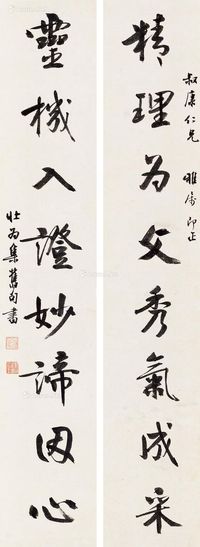 叔康仁兄 雅屬 即正
精理為文秀氣成采
靈機入證妙諦因心
壯為集舊句書